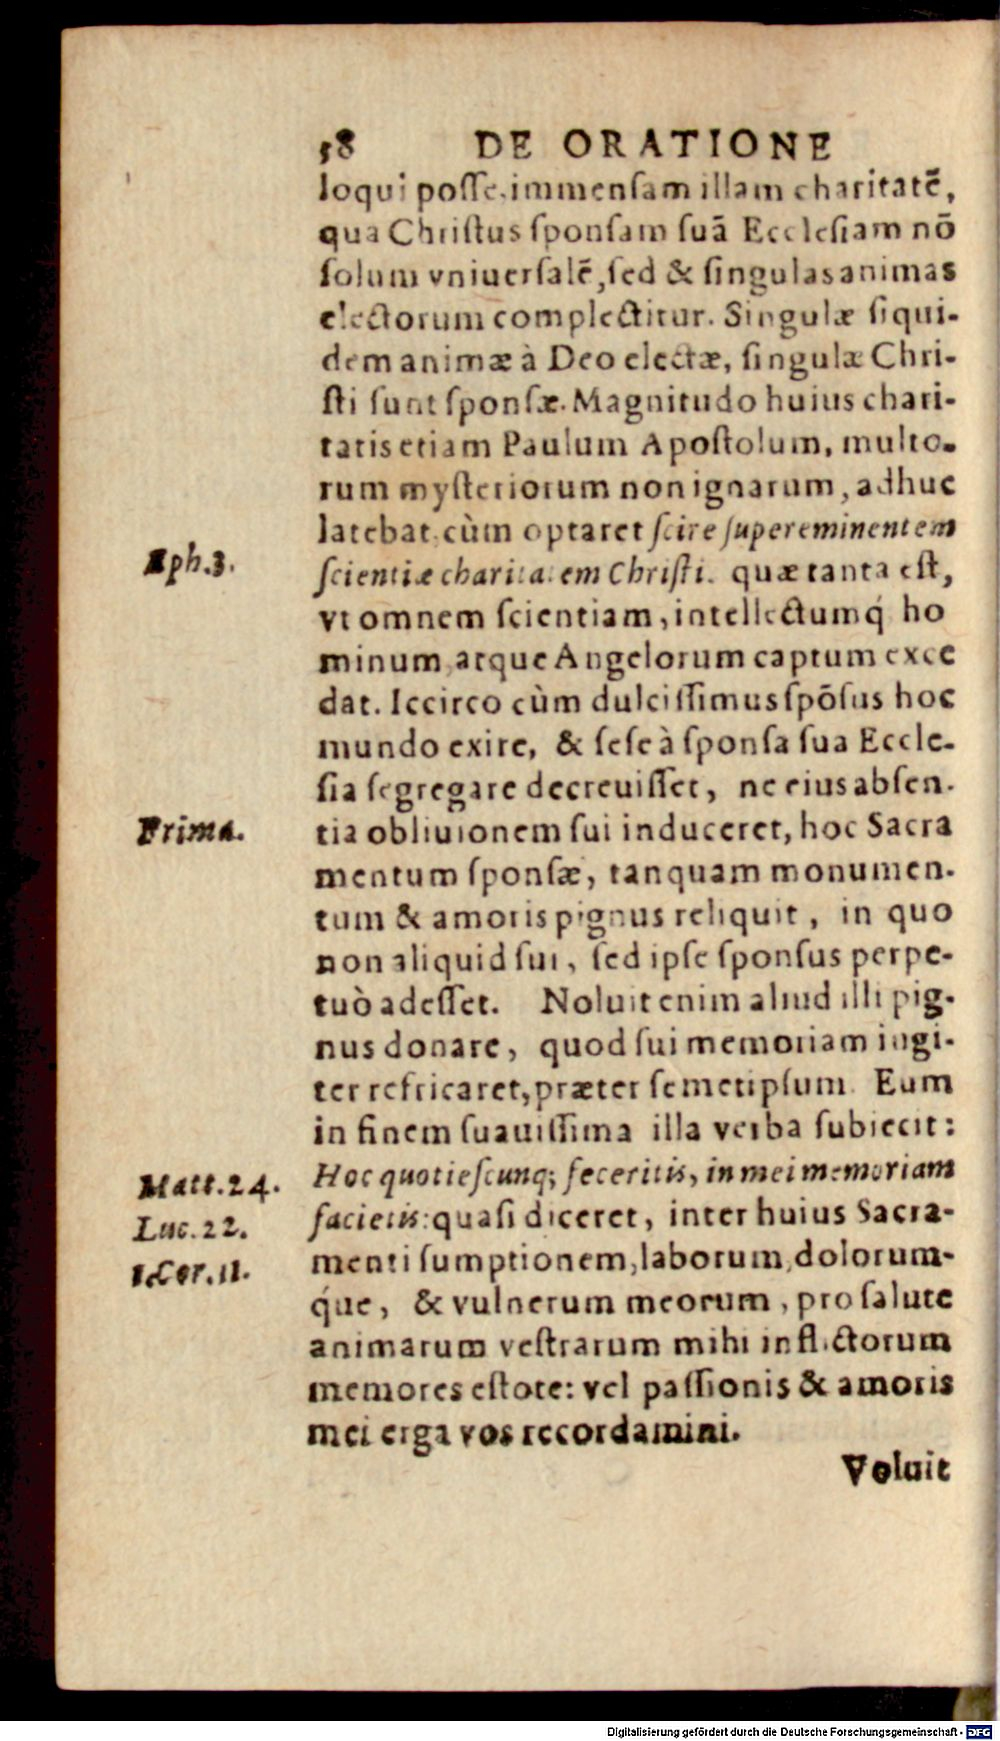 58 DE ORATIONE
loqui posse, immensam illam charitatẽ,
qua Christus sponsam suã Ecclesiam nõ
solum vniuersalẽ, sed & singulas animas
electorum complectitur. Singulæ siqui-
dem animæ à Deo electæ, singulæ Chri-
sti sunt sponsæ. Magnitudo huius chari-
tatis etiam Paulum Apostolum, multo-
rum mysteriorum non ignarum, adhuc
latebat, cùm optaret scire supereminentem
Eph.3.
scientiæ charitatem Christi. quæ tanta est,
vt omnem scientiam, intellectumq́ ho
minum, atque Angelorum captum exce
dat. Iccirco cùm dulcissimus spõsus hoc
mundo exire, & sese à sponsa sua Eccle-
sia segregare decreuisset, ne eius absen-
Prima.
tia obliuionem sui induceret, hoc Sacra
mentum sponsæ, tanquam monumen-
tum & amoris pignus reliquit, in quo
non aliquid sui, sed ipse sponsus perpe-
tuò adesset. Noluit enim aliud illi pig-
nus donare, quod sui memoriam iugi-
ter refricaret, præter semetipsum. Eum
in finem suauissima illa verba subiecit:
Matt.24.
Hoc quotiescunq; feceritis, in mei memoriam
Luc.22.
facietis: quasi diceret, inter huius Sacra-
1.Cor.11.
menti sumptionem, laborum, dolorum-
q́ue, & vulnerum meorum, pro salute
animarum vestrarum mihi inflictorum
memores estote: vel passionis & amoris
mei erga vos recordamini.
Voluit
Digitalisierung gefördert durch die Deutsche Forschungsgemeinschaft - DFG